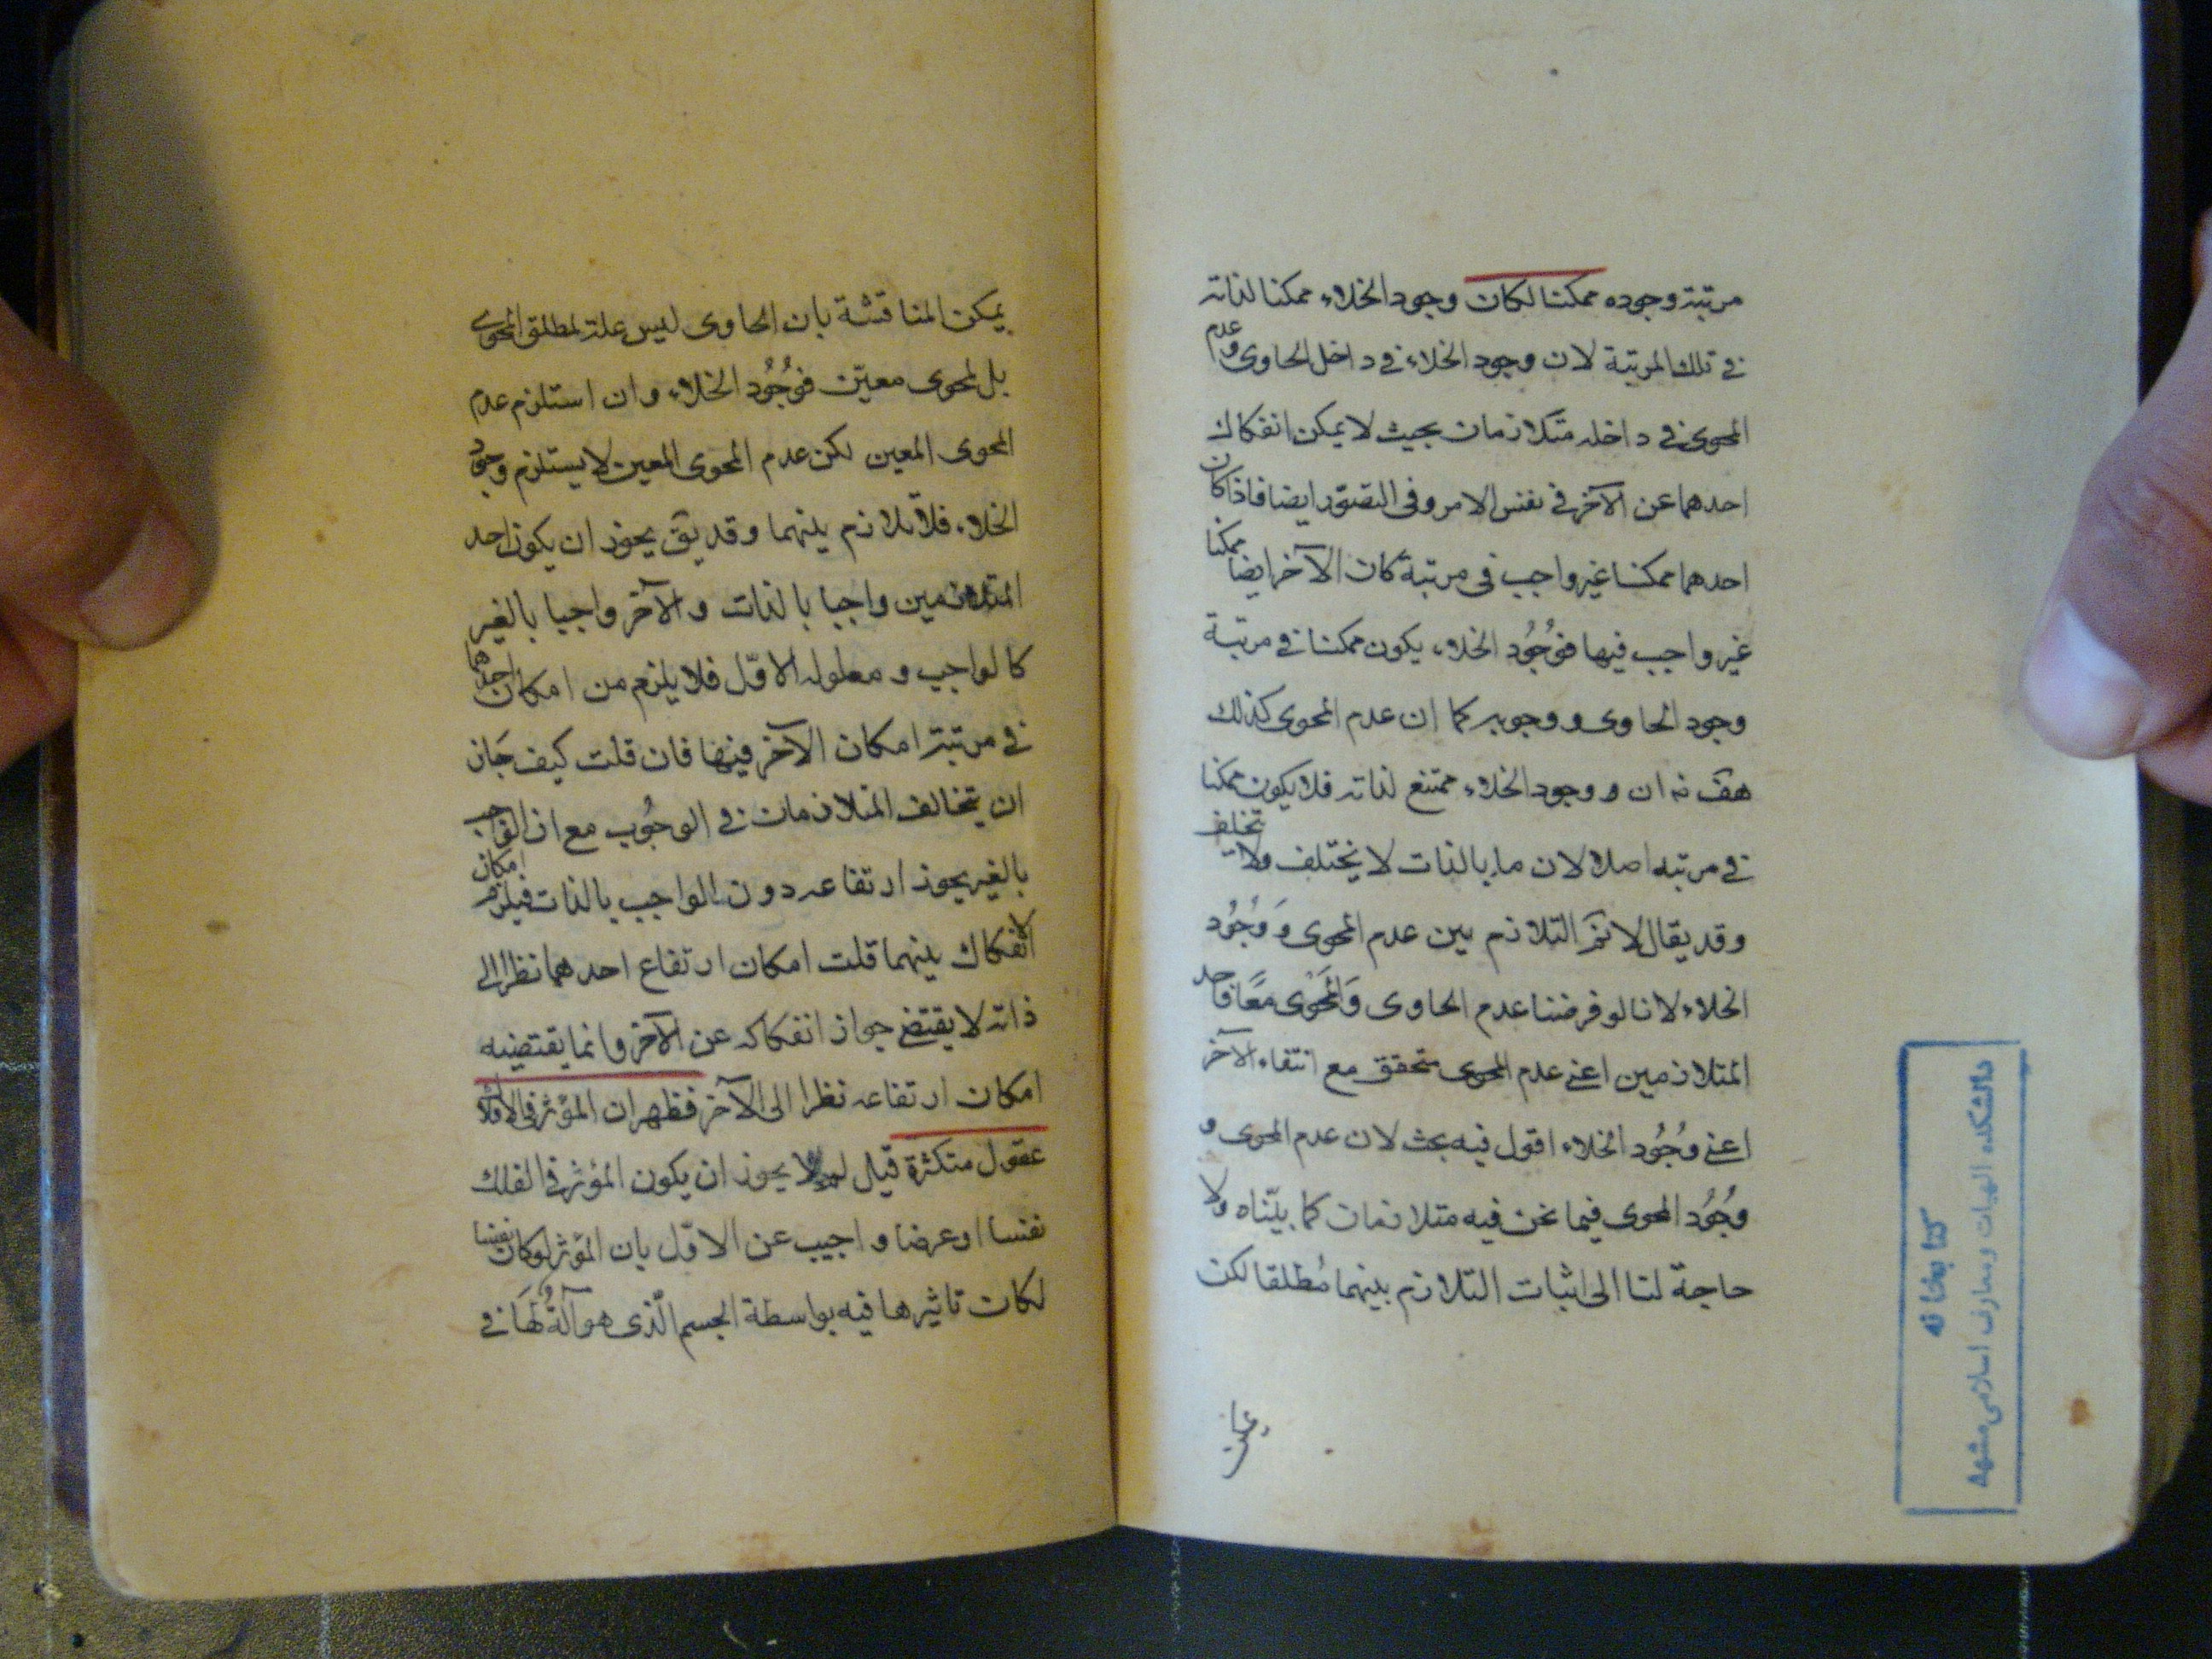 مرتبة وجوده ممكنا لكان وجود الخلاء ممكنا لذاته
في تلك المرتبة لان وجود الخلاء في داخل الحاوى وعدم
المحوى في داخله متلازمان بحيث لا يمكن انفكاك
احدهما عن الآخر في نفس الامر وفى التصوّر ايضا فاذا كان
احدهما ممكنا غير واجب فى مرتبة كان الآخر ايضا ممكنا
غير واجب فيها فوُجُود الخلاء يكون ممكنا في مرتبة
وجود الحاوى ووجوبه كما ان عدم المحوى كذلك
هف وجود الخلاء ممتنع لذاته فلا يكون ممكنا
في مرتبه اصلا لان ما بالذات لا يختلف ولا يتخلف
وقد يقال لانم التلازم بين عدم المحوى وَوُجُود
الخلاء لانا لو فرضنا عدم الحاوى وَالمَحْوى مَعًا فاحد
المتلازمين اعنے عدم المحوى متحقق مع انتفاء الآخر
اعنے وُجُود الخلاء اقول فيه بحث لان عدم المحوى و
وُجُود المحوى فيما نحن فيه متلازمان كما بيّناه ولا
حاجة لنا الى اثبات التلازم بينهما مُطلقا لكن
يمكن
دانشكده الهيات ومعارف اسلامى مشهد
كتابخانه
يمكن المناقشة بان الحاوى ليس علة لمطلق المحوى
بل لمحوى معيّن فوُجُود الخلاء وان استلزم عدم
المحوى المعين لكن عدم المحوى المعين لا يستلزم وجود
الخلاء فلا تلازم بينهما وقد يقَ يجوز ان يكون احد
المتلازمين واجبا بالذات والآخر واجبا بالغير
كالواجب ومعلوله الاوّل فلا يلزم من امكان احدهما
في مرتبة امكان الآخر فيها فان قلت كيف جَاز
ان يتخالف المتلازمان في الوجُوب مع ان الواجب
بالغير يجوز ارتفاعه دون الواجب بالذات فيلزم امكان
الانفكاك بينهما قلت امكان ارتفاع احدهما نظرا الى
ذاته لا يقتضے جواز انفكاكه عن الآخر وانما يقتضيه
امكان ارتفاعه نظرا الى الآخر فظهر ان المؤثر فى الافلاك
عقول متكثرة قيل لم لا يجوز ان يكون المؤثر فى الفلك
نفسا او عرضا واجيب عن الاوّل بان المؤثر لو كان نفسا
لكان تاثيرها فيه بواسطة الجسم الّذى هو آلةٌ لهَا في